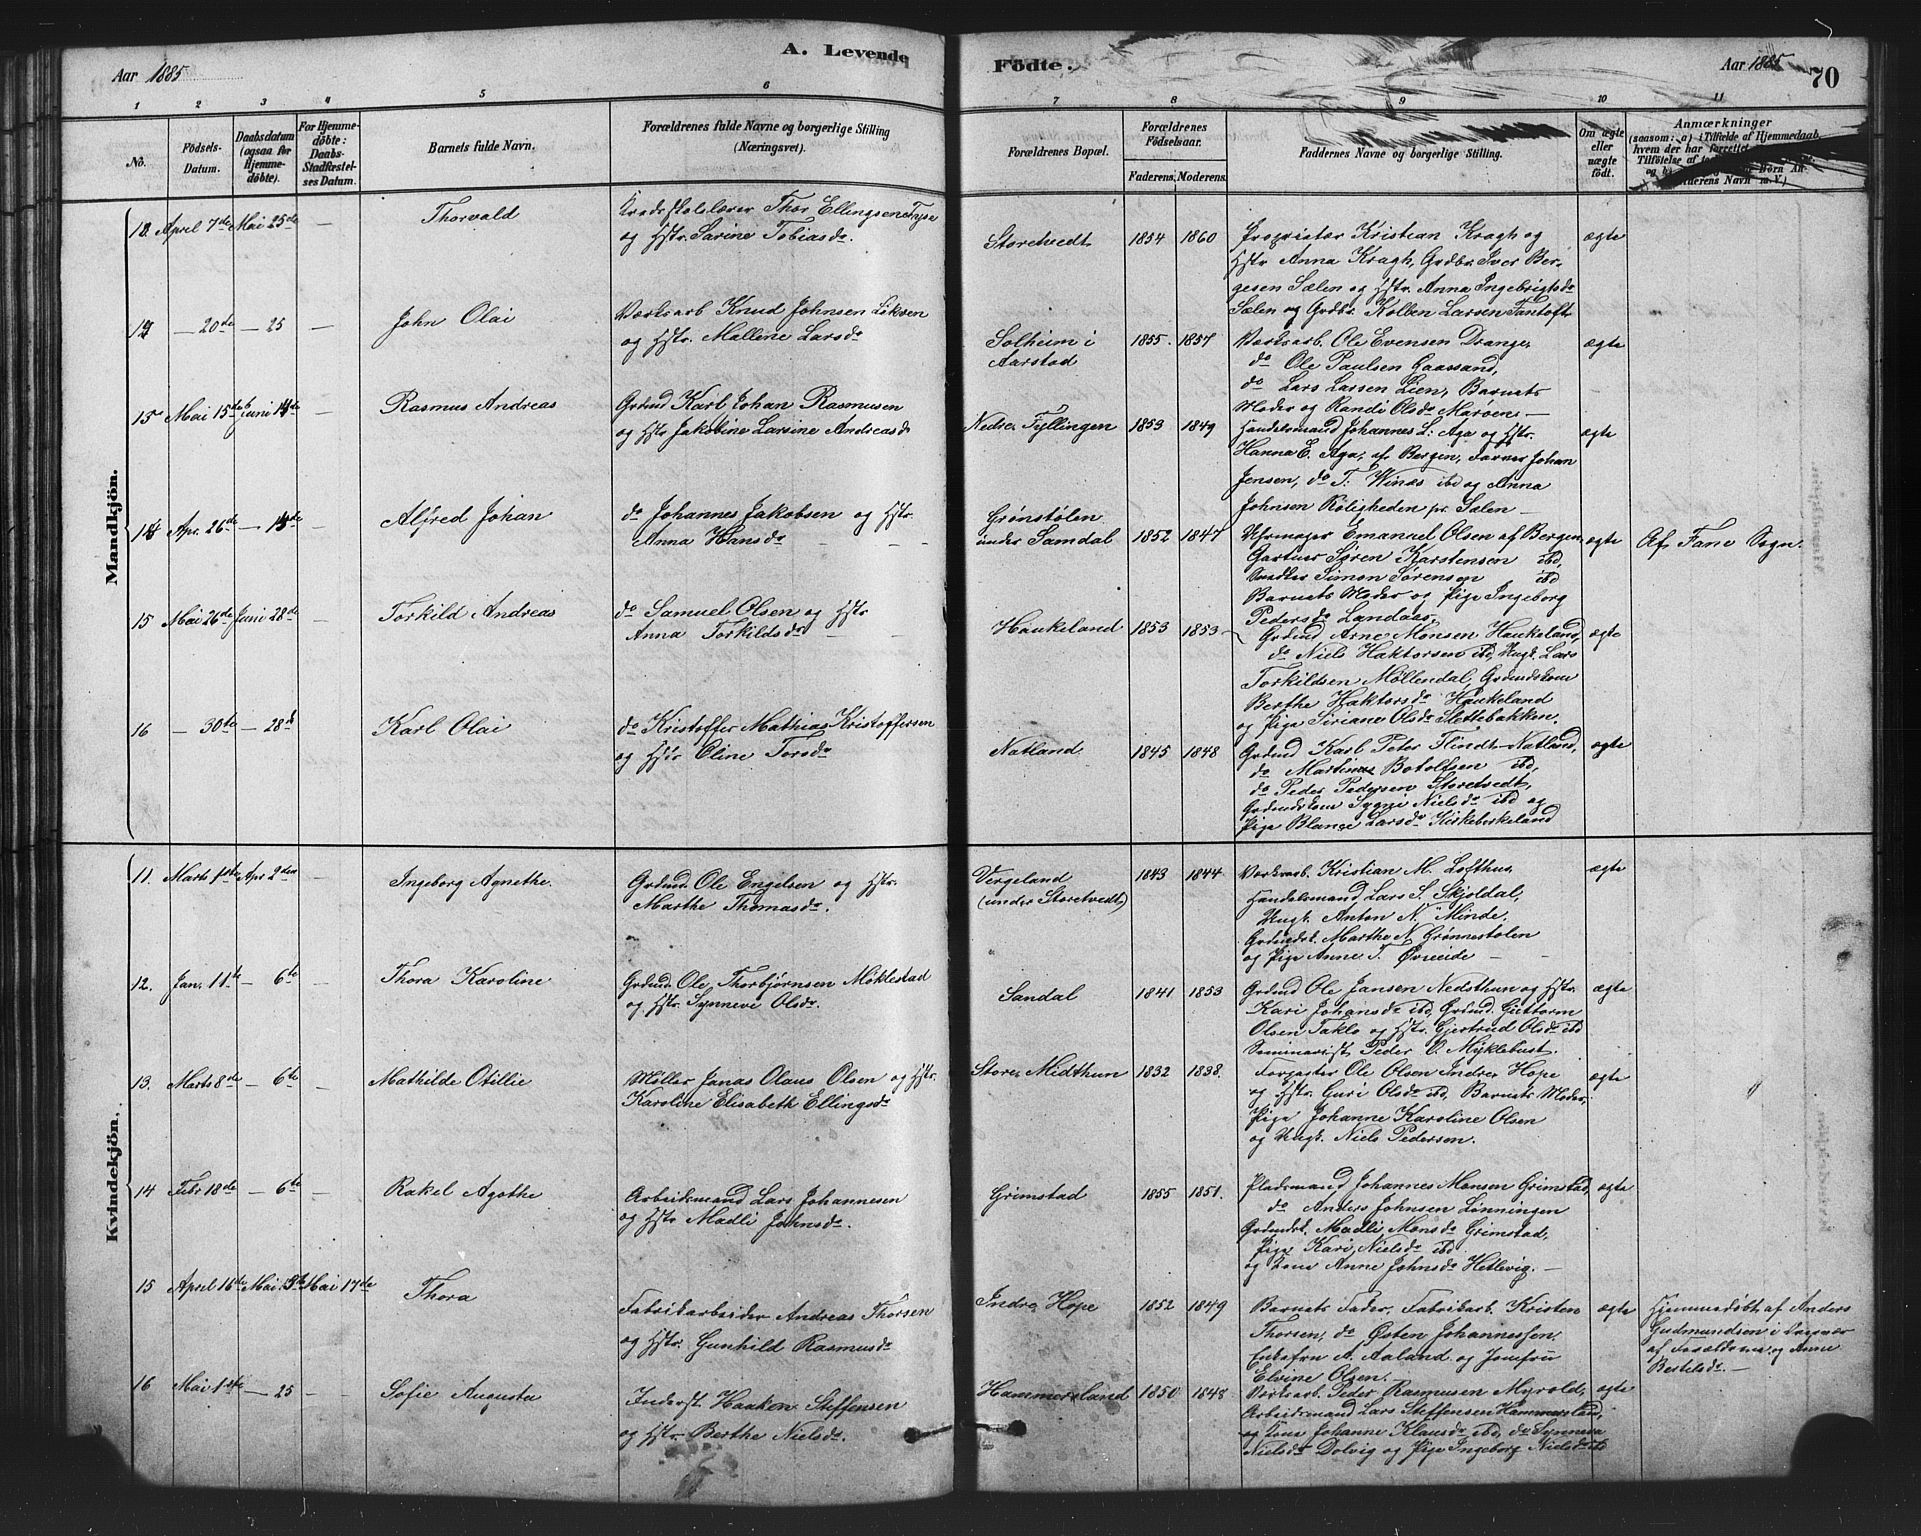 A. Levende
Födte.
Aar 1885
Aar 1885
70
1 2 3 4 5 6 7 8 9 10 11
No.
Födsels-Datum.
Daabsdatum (ogsaa for Hjemme-döbte).
For Hjemme-döbte: Daabs-Stadfæstelses Datum.
Barnets fulde Navn.
Forældrenes fulde Navne og borgerlige Stilling
(Næringsvei).
Forældrenes Bopæl.
Forældrenes Födselsaar.
Faderens. Moderens.
Faddernes Navne og borgerlige Stilling.
Om ægte eller uægte födt.
Anmærkninger
(saasom: a) i Tilfælde af Hjemmedaab,
hvem der har forrettet
Mandkjön.
12. April 7de Mai 25de — Thorvald
Kredsskolelærer Thor Ellingsen Tyse
og Hstr. Sarine Tobiasdr.
Storetvedt 1854 1860
Proprietær Kristian Kragh og
Hstr Anna Kragh, Grdbr. Iver Ber-
gesen Sælen og Hstr. Anna Ingebrigtsdr
Sælen og Grdbr. Kolben Larsen Fantoft
ægte
13 — 20de — 25 — John Olai
Værksarb Knud Johnsen
og Hstr. Mallene Larsdr
Solheim i
Aarstad
1855. 1857
Værksarb. Ole Evensen Drange,
do Ole Paulsen Gaassand,
do Lars Larsen Lien, Barnets
Moder og Randi Olsdr —
ægte
Mai 15de Juni 14de — Rasmus Andreas
Grdmd Karl Johan Rasmusen
og Hstr Jakobine Larsine Andreasdr
Nedre Tyllingen 1853 1849
Handelsmand Johannes L. Aga og Hstr.
Hanna E. Aga, af Bergen, Farver Johan
Jensen, do T. Winæs ibd og Anna
Johnsen Roligheden pr. Sælen —
ægte
14 Apr. 26de — 14de — Alfred Johan
do Johannes Jakobsen og Hstr
Anna Hansdr — —
Grønstølen
under Sandal
1852 1847
Uhrmager Emanuel Olsen af Bergen
Gartner Søren Karstensen ibd,
Snedker Simon Sørensen ibd
Barnets Moder og Pige Ingeborg
Pedersdr Landaas,
ægte
Af Fane Sogn.
15 Mai 26de Juni 28de — Torkild Andreas
do Samuel Olsen og Hstr
Anna Torkildsdr — —
Haukeland 1853 1853
Grdmd Arne Monsen Haukeland,
do Niels Haktorsen ibd, Ungk. Lars
Torkildsen Møllendal, Grdmdskone
Berthe Haktorsdr Haukeland
og Pige Siriane Olsdr Slettebakken.
ægte
16 — 30te — 28d — Karl Olai
do Kristoffer Mathias Kristoffersen
og Hstr Oline Torsdr
Natland 1845 1848
Grdmd Karl Peter Flindt Natland,
do Martinus Botolfsen ibd,
do Peder Pedersen Storetvedt,
Grdmdskone Nielsdr ibd og
Pige Larsdr Kirkebirkeland
ægte
Kvindekjön.
11. Marts 1ste Apr 2den Ingeborg Agnethe.
Grdmd. Ole Engelsen og Hstr.
Marthe Thomasdr.
Vergeland
(under Storetvedt)
1843 1844
Værksarb. Kristian M. Lofthus
Handelsmand Lars S. Skjoldal,
Ungk. Anton N. Minde.
Grdmdsk. Marthe N. Grønnestolen
og Pige Anne T. Øvreeide —
ægte
12. Jan. 11te — 6te — Thora Karoline
Grdmd. Ole Thorbjørnsen Møklestad
og Hstr. Synneve Olsdr.
Sandal 1841 1853
Grdmd Ole Jansen Nedsthun og Hstr.
Kari Johansdr ibd, Grdmd. Guttorm
Olsen Taklo og Hstr. Gjertrud Olsdr ibd
Seminarist Peder O. Myklebust.
ægte
13. Marts 8de — 6te — Mathilde Otillie
Møller Jonas Olaus Olsen og Hstr.
Karoline Elisabeth Ellingsdr
Store Midthun 1832 1838.
Forpagter Ole Olsen Indre Hope
og Hstr. Guri Olsdr ibd, Barnets Moder,
Pige Johanne Karoline Olsen
og Ungk. Niels Pedersen.
ægte
14 Febr 18de — 6te — Rakel Agathe
Arbeidsmand Lars Johannesen
og Hstr Madli Johnsdr.
Grimstad 1855 1851.
Pladsmand Johannes Monsen Grimstad,
do Anders Johnsen Lønningen
Grdmdsk. Madli Monsdr Grimstad,
Pige Kari Nielsdr ibd.
og Kone Anne Johnsdr Hetlevig. —
ægte
15 April 16de Mai Mai 17de Thora
Fabrikarbeider Andreas Thorsen
og Hstr. Gunhild Rasmusdr
Indre Hope 1852 1849
Barnets Fader, Fabrikarb. Kristen
Thorsen, do Østen Johannessen,
Enkefru A. Aaland og Jomfru
Elvine Olsen. —
ægte
Hjemmedøbt af Anders
Gudmundsen i Nærvær
af Forældrene og Anne
Bertelsdr. —
16 Mai 1ste — 25 — Sofie Augusta
Inderst Haakon Steffensen
og Hstr Berthe Nielsdr.
Hammersland 1850 1848
Værksarb. Peder Rasmusen Myrold,
Arbeidsmand Lars Steffensen Hammersland,
og Kone Johanne Klausdr ibd, do Synneva
Nielsdr Dolvig og Pige Ingeborg Nielsdr ib
ægte